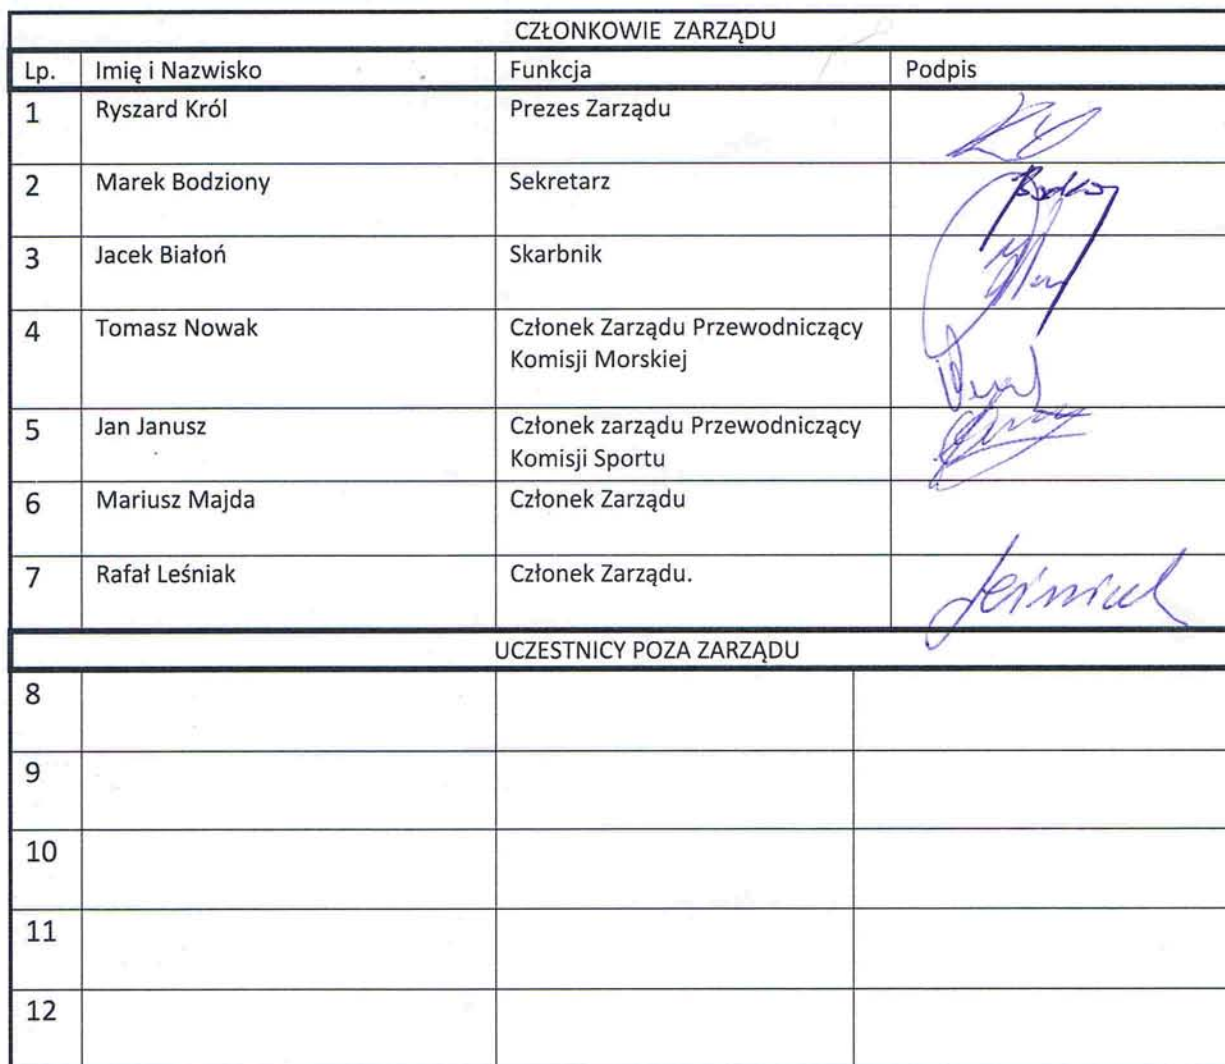 CZŁONKOWIE ZARZĄDU
Lp. Imię i Nazwisko Funkcja Podpis
1 Ryszard Król Prezes Zarządu
2 Marek Bodziony Sekretarz
3 Jacek Białoń Skarbnik
4 Tomasz Nowak Członek Zarządu Przewodniczący
Komisji Morskiej
5 Jan Janusz Członek zarządu Przewodniczący
Komisji Sportu
6 Mariusz Majda Członek Zarządu
7 Rafał Leśniak Członek Zarządu. Leśniak
UCZESTNICY POZA ZARZĄDU
8
9
10
11
12